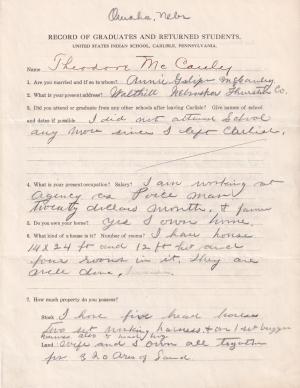 Omaha, Nebr
RECORD OF GRADUATES AND RETURNED STUDENTS.
UNITED STATES INDIAN SCHOOL, CARLISLE, PENNSYLVANIA.
Name Theodore McCauley
1. Are you married and if so to whom? Annie McCauley
2. What is your present address? Walthill Nebraska Thurston Co.
3. Did you attend or graduate from any other schools after leaving Carlisle? Give names of school
and dates if possible I did not attend School
any more since I left Carlisle.
4. What is your present occupation? Salary? I am working at
agency as Police man
twenty dollars month, & farmer
5. Do you own your home? Yes I own home.
6. What kind of a house is it? Number of rooms? I have house
14 x 24 ft and 12 ft and
four rooms in it, they are
well done,
7. How much property do you possess?
Stock I have five head horses
two set working harness & on 1 set buggy
harness also & buggy
Land Wife and I own all together
for 320 Acres of Land